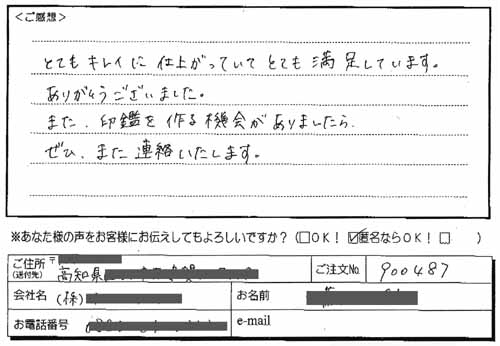 ＜ご感想＞
とてもキレイに仕上がっていてとても満足しています。
ありがとうございました。
また、印鑑を作る機会がありましたら
ぜひ、また連絡いたします。
※あなた様の声をお客様にお伝えしてもよろしいですか？（□OK！ ☑匿名ならOK！ □　　）
ご住所 〒
(送付先) 高知県
ご注文No. 900487
会社名 (株)
お名前
お電話番号
e-mail